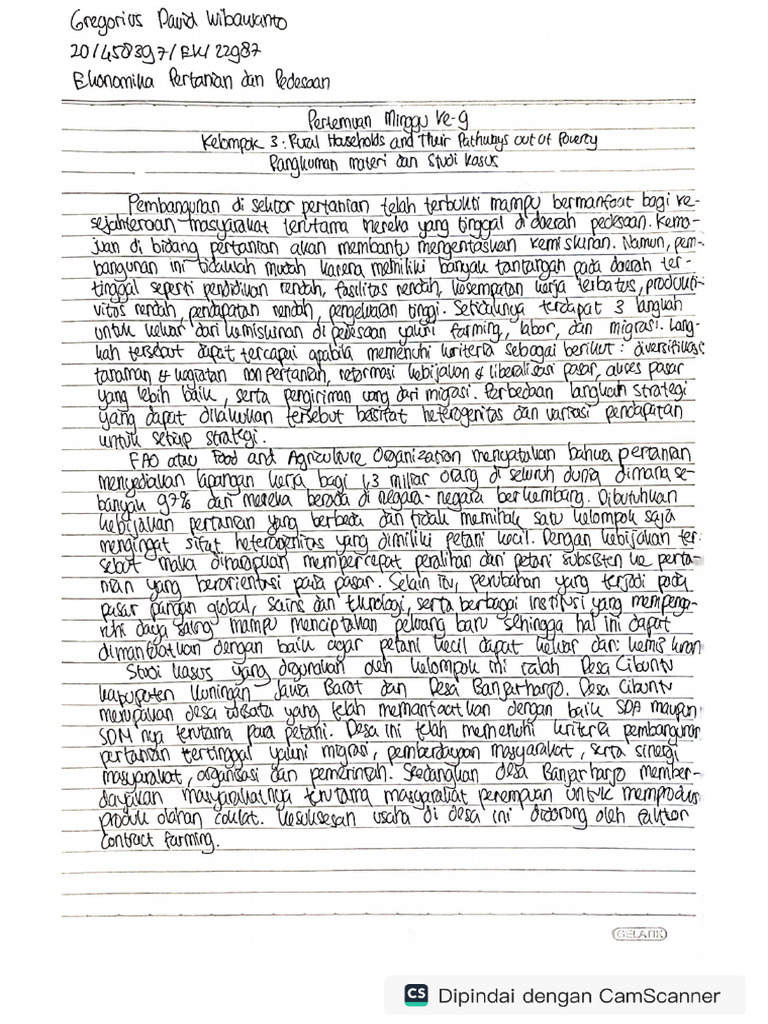 Gregorius David Wibawanto
20/458397/EK/22987
Ekonomika Pertanian dan Pedesaan
Pertemuan Minggu Ke-9
Kelompok 3: Rural Households and Their Pathways out of Poverty
Rangkuman materi dan Studi Kasus
Pembangunan di sektor pertanian telah terbukti mampu bermanfaat bagi ke-
sejahteraan masyarakat terutama mereka yang tinggal di daerah pedesaan. Kema-
juan di bidang pertanian akan membantu mengentaskan kemiskinan. Namun, pem-
bangunan ini tidaklah mudah karena memiliki banyak tantangan pada daerah ter-
tinggal seperti pendidikan rendah, fasilitas rendah, kesempatan kerja terbatas, produkti-
vitas rendah, pendapatan rendah, pengeluaran tinggi. Setidaknya terdapat 3 langkah
untuk keluar dari kemiskinan di pedesaan yakni farming, labor, dan migrasi. Lang-
kah tersebut dapat tercapai apabila memenuhi kriteria sebagai berikut: diversifikasi
tanaman & kegiatan non pertanian, reformasi kebijakan & liberalisasi pasar, akses pasar
yang lebih baik, serta pengiriman uang dari migasi. Perbedaan langkah strategi
yang dapat dilakukan tersebut bersifat heterogenitas dan variasi pendapatan
untuk setiap strategi.
FAO atau Food and Agriculture Organization menyatakan bahwa pertanian
menyediakan lapangan kerja bagi 1,3 miliar orang di seluruh dunia dimana se-
banyak 97% dari mereka berada di negara-negara berkembang. Dibutuhkan
kebijakan pertanian yang berbeda dan tidak memihak satu kelompok saja
mengingat sifat heterogenitas yang dimiliki petani kecil. Dengan kebijakan ter-
sebut maka diharapkan mempercepat peralihan dari petani subsisten ke perta-
nian yang berorientasi pada pasar. Selain itu, perubahan yang terjadi pada
pasar pangan global, sains dan teknologi, serta berbagai institusi yang mempeng-
ruhi daya saing mampu menciptakan peluang baru sehingga hal ini dapat
dimanfaatkan dengan baik agar petani kecil dapat keluar dari kemiskinan
Studi kasus yang digunakan oleh kelompok ini ialah Desa Cibuntu
Kabupaten Kuningan Jawa Barat dan Desa Banjarharjo. Desa Cibuntu
merupakan desa wisata yang telah memanfaatkan dengan baik SDA maupun
SDM nya terutama para petani. Desa ini telah memenuhi kriteria pembangunan
pertanian tertinggal yakni migrasi, pemberdayaan masyarakat, serta sinergi
masyarakat, organisasi dan pemerintah. Sedangkan desa Banjarharjo member-
dayakan masyarakatnya terutama masyarakat perempuan untuk memproduksi
produk olahan coklat. Kesuksesan usaha di desa ini didorong oleh faktor
contract farming.
GELATIK
CS Dipindai dengan CamScanner